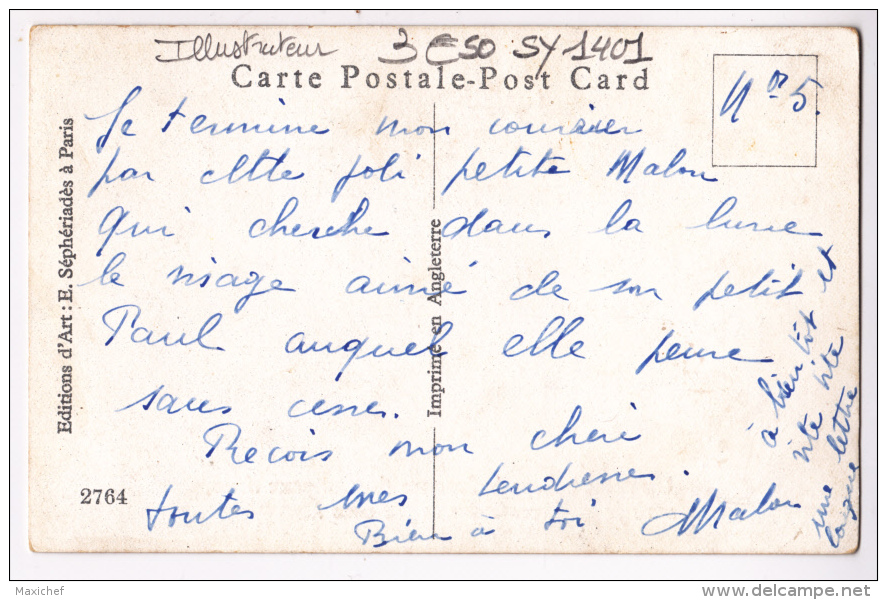 Illustrateur 3€50 SY1401
Carte Postale-Post Card
N° 5.
Je termine mon courrier
par cette joli petite Malou
qui cherche dans la lune
le visage aimé de son petit
Paul auquel elle pense
sans cesse.
Recois mon cheri
toutes mes tendresses.
Bien à toi Malou
à bientôt et
vite vite
une lettre
longue
Editions d'Art: E. Séphériadès à Paris
Imprimé en Angleterre
2764
Maxichef
www.delcampe.net